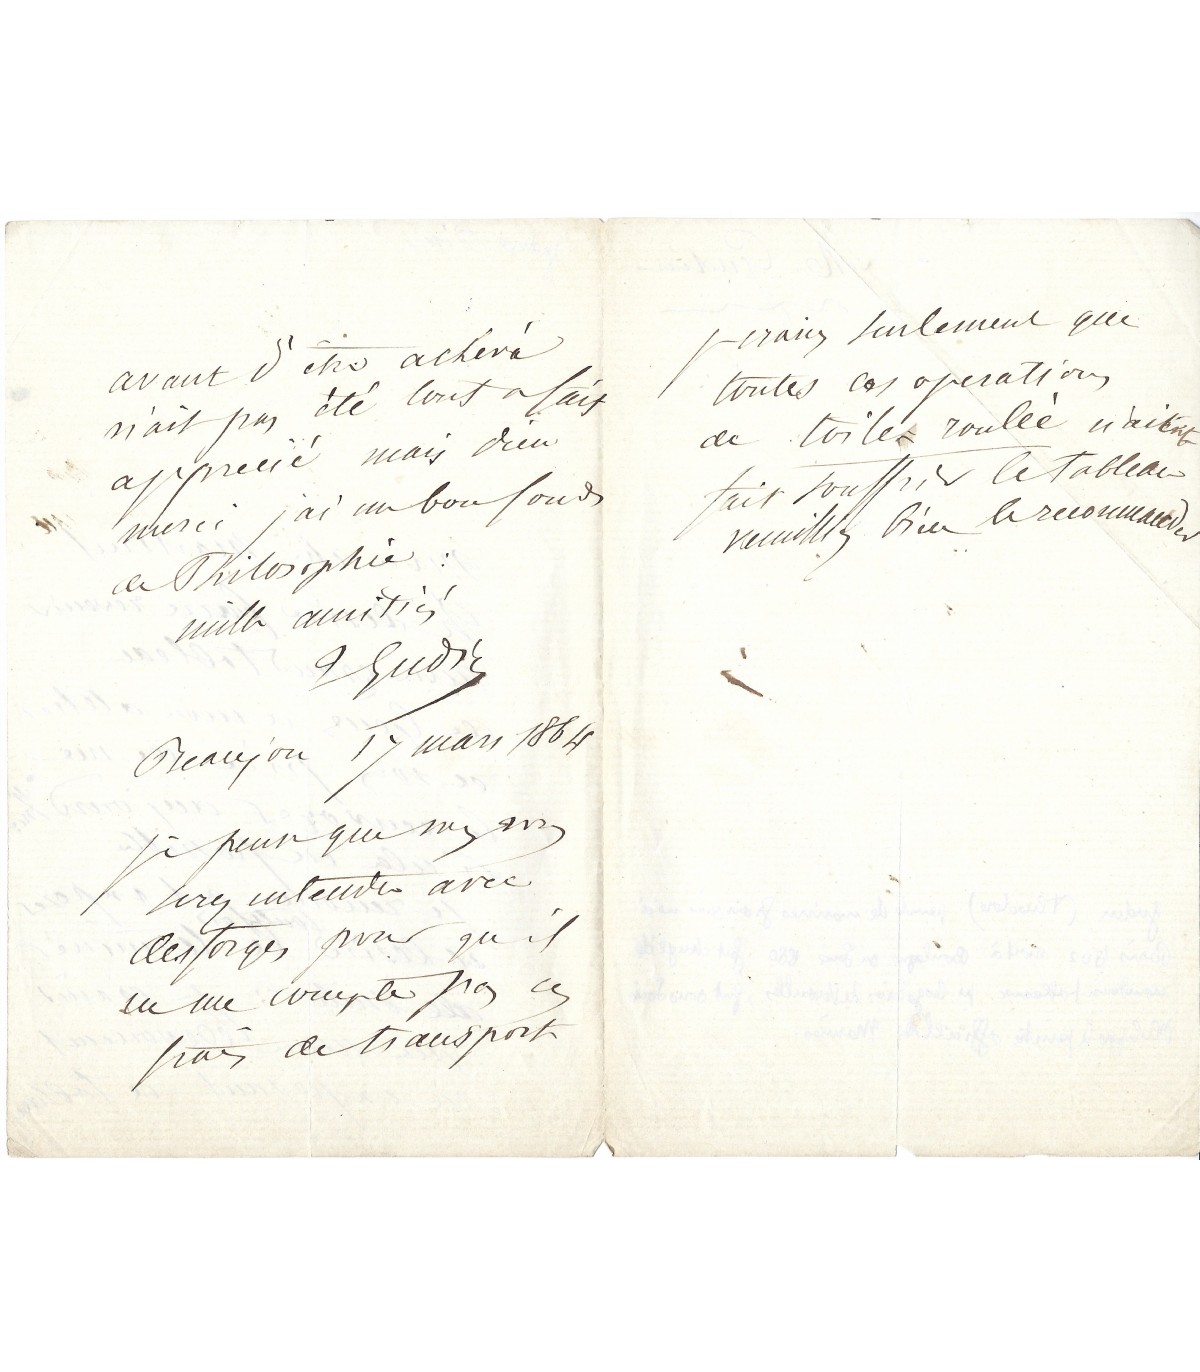 avant d'être achevé
n'ait pas été tout a fait
apprecié mais dieu
merci j'ai un bon fonds
de Philosophie :
mille amitiés
T Gudin
Beaujon 17 mars 1864
je pense que
intendre avec
desforges pour qu'il
ne me compte pas ces
frais de transport
je crains seulement que
toutes ces operations
de toile roulée n'aient
fait souffrir le tableau
veuillez bien le recommander